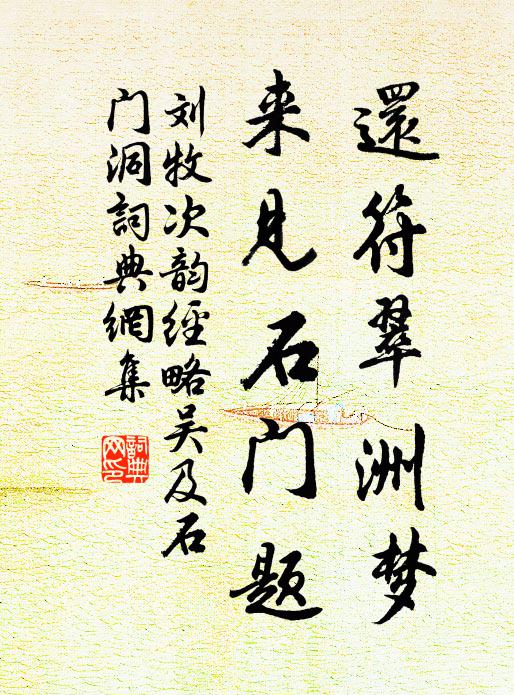 還符翠洲梦
来見石门题
刘牧次韵經略吴及石
门洞詞典網集
詞典
网印